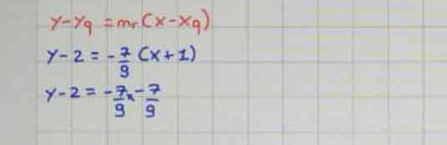 y-y₉ = mᵣ(x-x₉)
y-2 = -7/9 (x+1)
y-2 = -7/9 x - 7/9